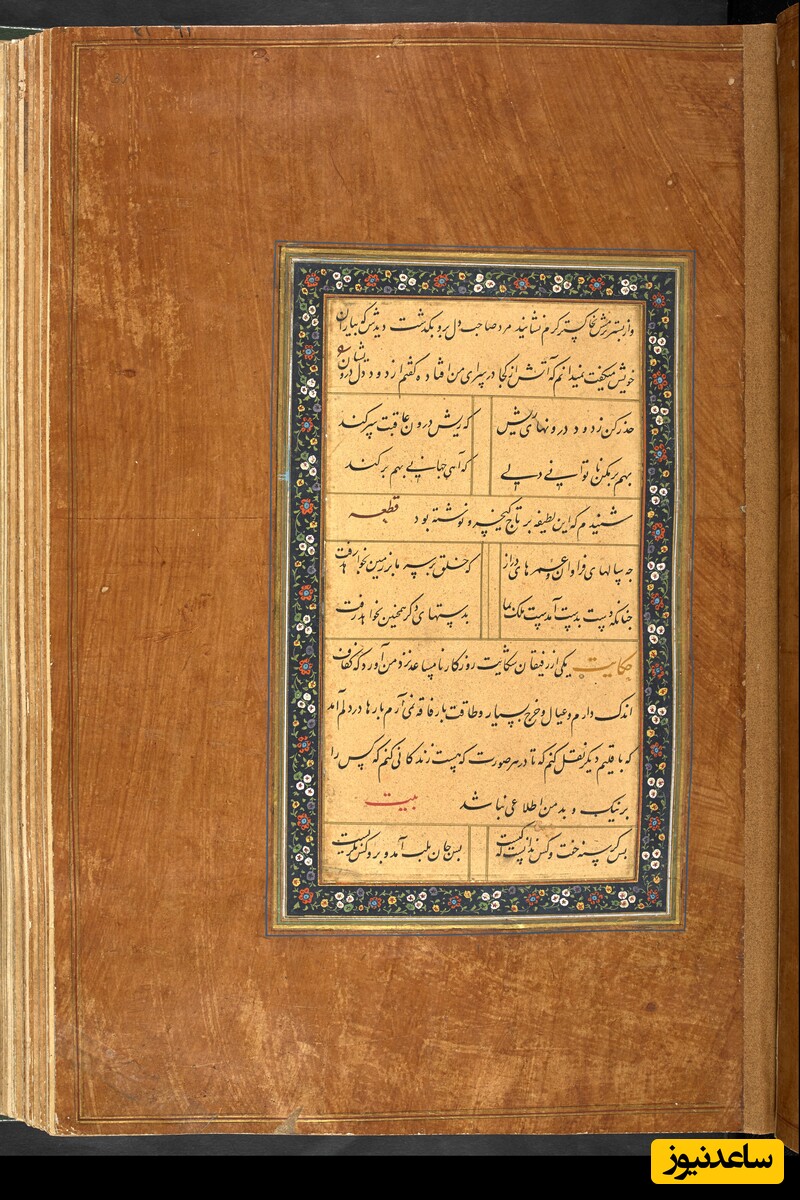 واز بستر نرمش بخاکستر گرم نشانید مرد صاحب دل برو بگذشت دیدش که بیاران
خویش میگفت نمیدانم که آتش از کجا در سرای من افتاده گفتم از دود دل درویشان
حذر کن ز دود درونهای ریش که ریش درون عاقبت سر کند
بهم بر مکن تا توانی دلی که آهی جهانی بهم بر کند
شنیدم که این لطیفه بر تاج کیخسرو نوشته بود قطعه
چه سالهای فراوان و عمرهای دراز که خلق بر سر ما بر زمین بخواهد رفت
چنانکه دست بدست آمدست ملک بما بدستهای دگر همچنین بخواهد رفت
حکایت یکی از رفیقان شکایت روزگار نامساعد نزد من آورد که کفاف
اندک دارم و عیال و خرج بسیار و طاقت بار فاقه نمی آرم بارها در دلم آمد
که باقلیم دیگر نقل کنم که تا در هر صورت که هست زندگانی کنم که کس را
بر نیک و بد من اطلاعی نباشد بیت
بس گرسنه خفت و کس ندانست که کیست بس جان بلب آمد و برو کس نگریست
ساعدنیوز